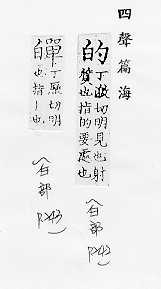 四聲篇海
的 丁歷切明見也射
質也指的要處也
(白部 P242)
丁歷切明
也指丨也
(白部 P243)